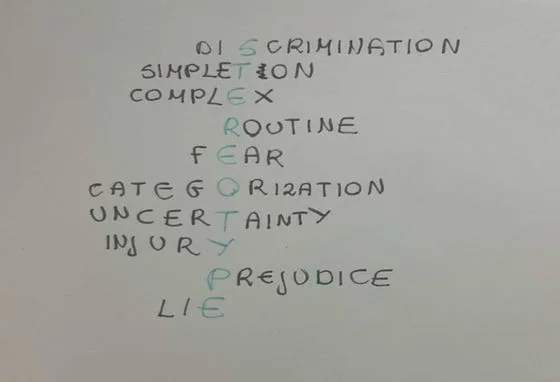 DISCRIMINATION
SIMPLETION
COMPLEX
ROUTINE
FEAR
CATEGORIZATION
UNCERTAINTY
INJURY
PREJUDICE
LIE